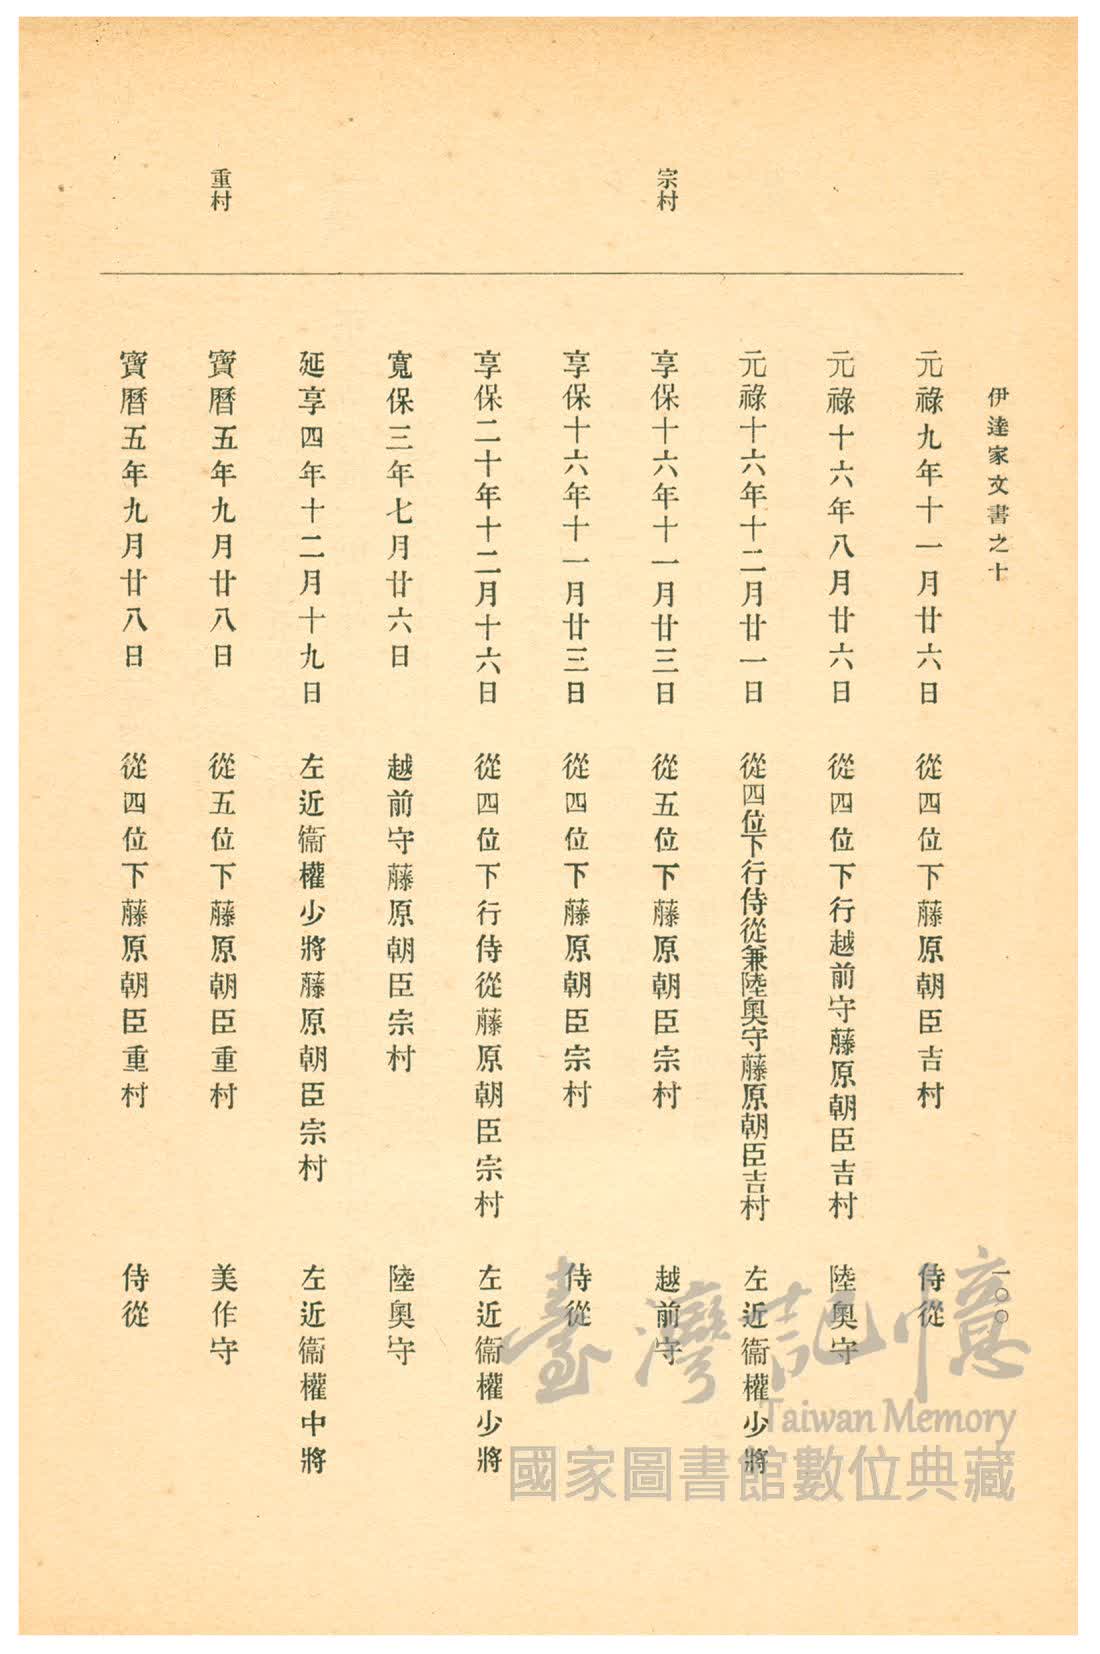 伊達家文書之十
一〇〇
元祿九年十一月廿六日　從四位下藤原朝臣吉村　侍從
元祿十六年八月廿六日　從四位下行越前守藤原朝臣吉村　陸奧守
元祿十六年十二月廿一日　從四位下行侍從兼陸奧守藤原朝臣吉村　左近衞權少將
宗村
享保十六年十一月廿三日　從五位下藤原朝臣宗村　越前守
享保十六年十一月廿三日　從四位下藤原朝臣宗村　侍從
享保二十年十二月十六日　從四位下行侍從藤原朝臣宗村　左近衞權少將
寬保三年七月廿六日　越前守藤原朝臣宗村　陸奧守
延享四年十二月十九日　左近衞權少將藤原朝臣宗村　左近衞權中將
重村
寶曆五年九月廿八日　從五位下藤原朝臣重村　美作守
寶曆五年九月廿八日　從四位下藤原朝臣重村　侍從
臺灣記憶
Taiwan Memory
國家圖書館數位典藏